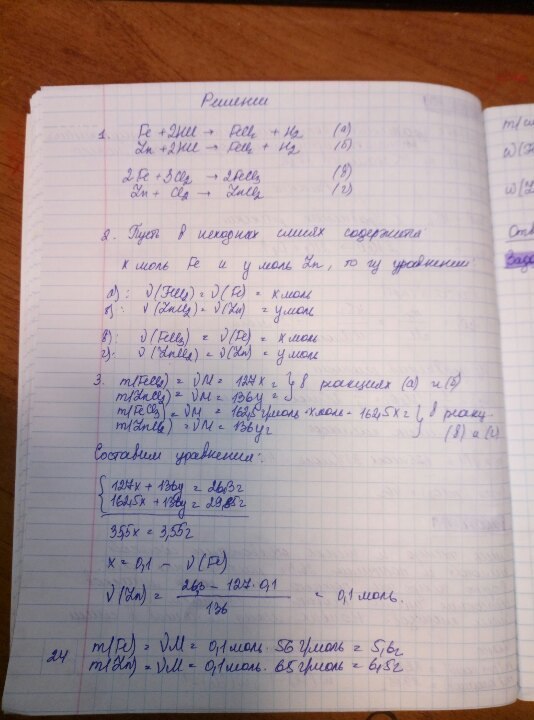 Решение
1. Fe + 2HCl → FeCl₂ + H₂ (а)
Zn + 2HCl → FeCl₂ + H₂ (б)
2Fe + 3Cl₂ → 2FeCl₃ (в)
Zn + Cl₂ → ZnCl₂ (г)
2. Пусть в исходных смесях содержится
x моль Fe и y моль Zn, то из уравнений
а): ν(FeCl₂) = ν(Fe) = x моль
б): ν(ZnCl₂) = ν(Zn) = y моль
в): ν(FeCl₃) = ν(Fe) = x моль
г): ν(ZnCl₂) = ν(Zn) = y моль
3. m(FeCl₂) = νM = 127x г } в реакциях (а) и (б)
m(ZnCl₂) = νM = 136y г
m(FeCl₃) = νM = 162,5 г/моль · x моль = 162,5x г } в реакц-
m(ZnCl₂) = νM = 136y г (в) и (г)
Составим уравнения:
{ 127x + 136y = 26,3г
162,5x + 136y = 29,85г
35,5x = 3,55г
x = 0,1 – ν(Fe)
ν(Zn) = 26,3 – 127·0,1 / 136 = 0,1 моль.
m(Fe) = νM = 0,1 моль · 56 г/моль = 5,6г
24 m(Zn) = νM = 0,1 моль · 65 г/моль = 6,5г